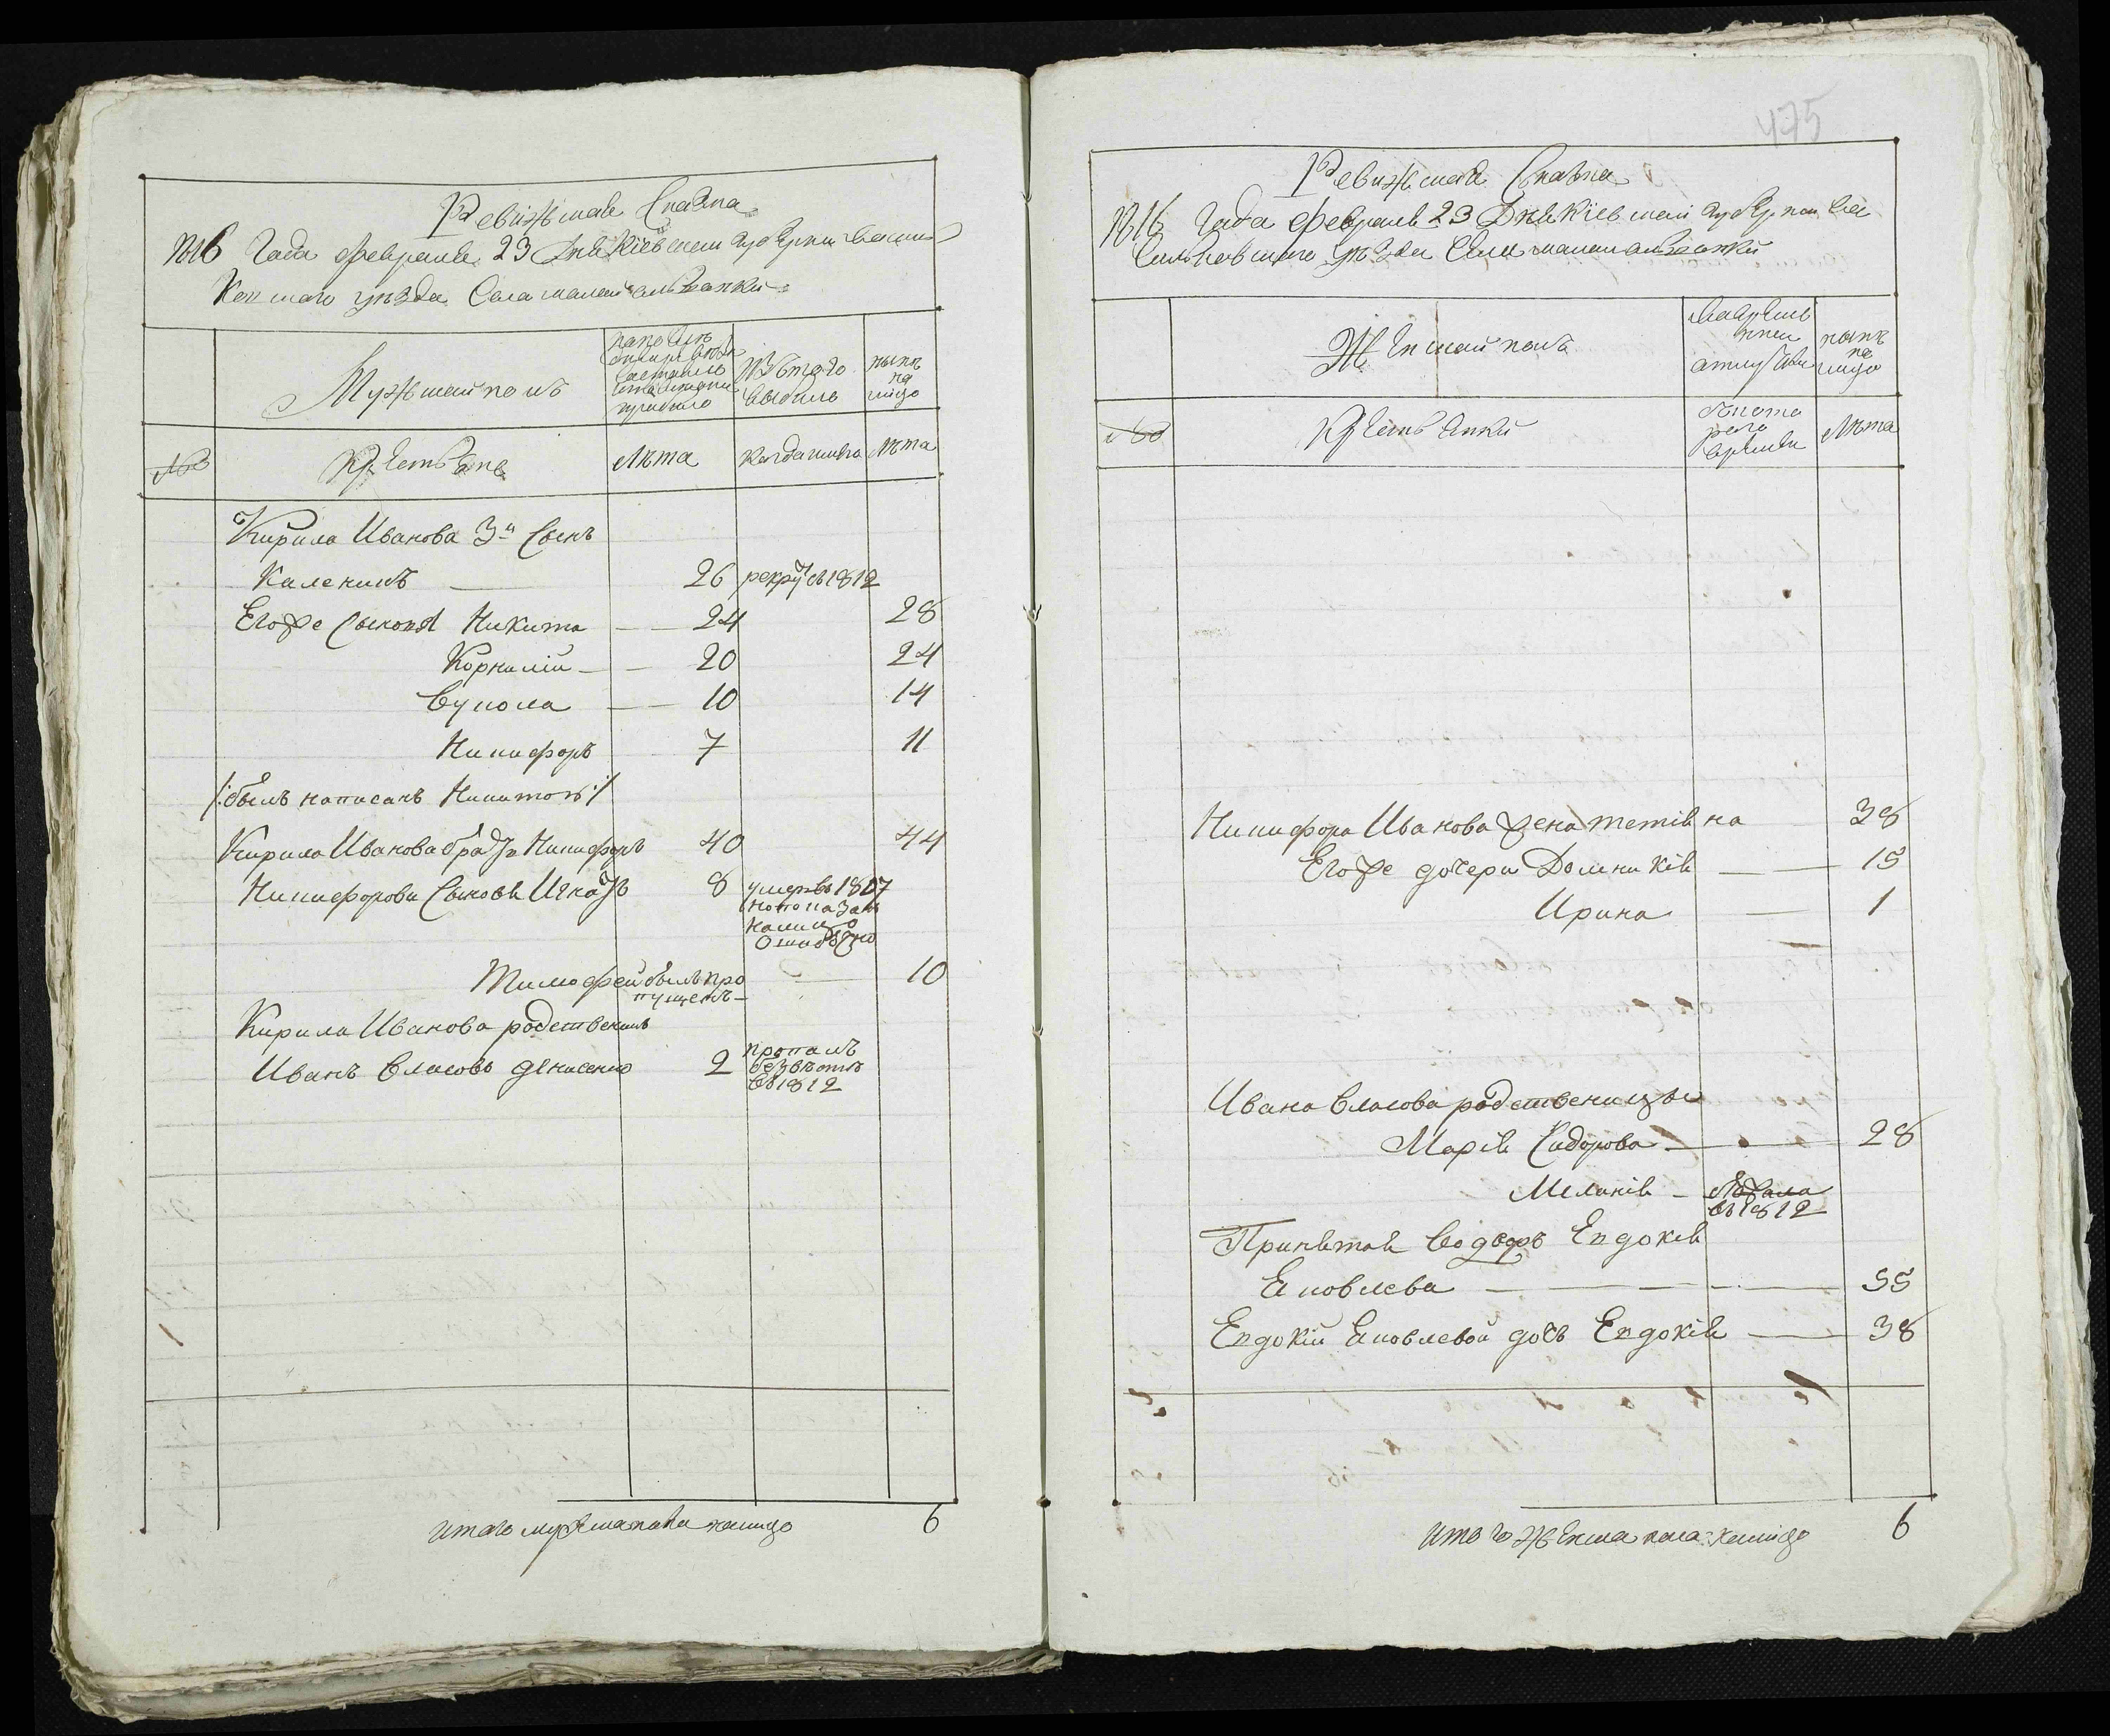 Ревижская Сказка
1816 Года февраля 23 Дня Киевской губернии Василь
Ковского уезда Села малой
Мужеской полъ
ныне
на
лицо
Изъ того
выбыло
№
Крестьяне
Лѣта
когда имянно
Лѣта
Кирила Иванова 3й Сынъ
Каленикъ 26 рекрут въ 1812
Егоже Сыновя Никита 24 28
Корнилій 20 24
Вукола 10 14
Никифоръ 7 11
/: былъ написанъ Никитою :/
Кирила Иванова братъ Никифоръ 40 44
Никифорови Сыновя Игнатъ 8 умеръ въ 1807
но показанъ
налицо
ошибочно
Тимофей былъ про 10
пущенъ
Кирила Иванова родственикъ
Иванъ Власовъ Денисенко 2 пропалъ
безвѣстно
въ 1812
итого мужеска пола налицо 6
475
Ревижская Сказка
1816 Года февраля 23 Дня Киевской губернии Ва
сильковского уезда Села малой
Женской полъ
во временной
отлучки
ныне
на
лицо
№
Крестьянки
съ кото
рого
времяни
Лѣта
Никифора Иванова жена Тетіяна 38
Егоже дочери Домникія 15
Ирина 1
Ивана Власова родственицы
Марія Сидорова 28
Меланія
въ 1812
Принятая во дворъ Евдокія
Яковлева 55
Евдокіи Яковлевой дочь Евдокія 38
итого женска пола налицо 6